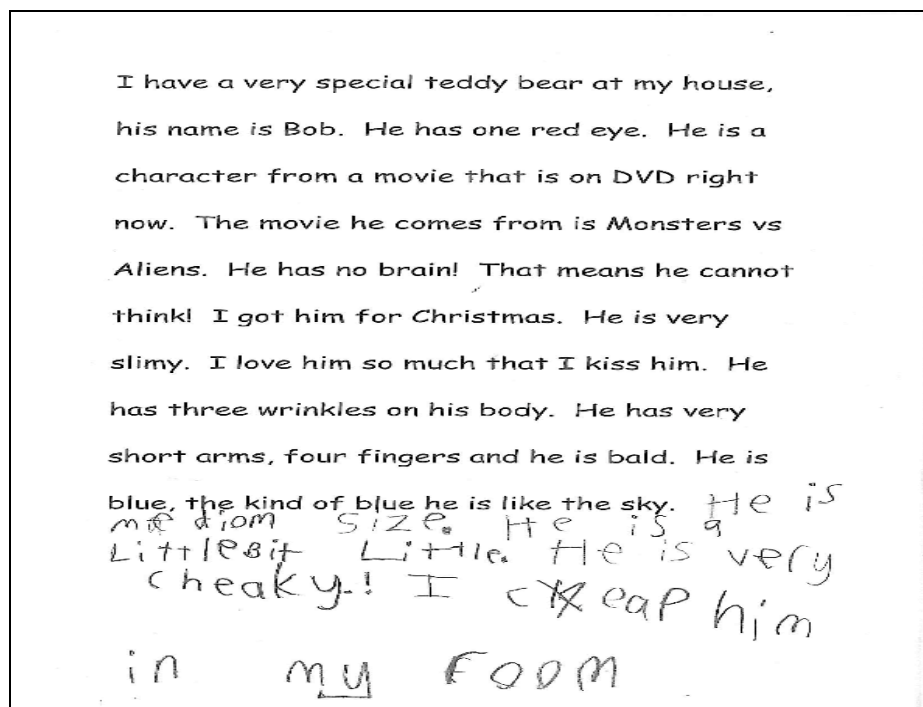 I have a very special teddy bear at my house,
his name is Bob. He has one red eye. He is a
character from a movie that is on DVD right
now. The movie he comes from is Monsters vs
Aliens. He has no brain! That means he cannot
think! I got him for Christmas. He is very
slimy. I love him so much that I kiss him. He
has three wrinkles on his body. He has very
short arms, four fingers and he is bald. He is
blue, the kind of blue he is like the sky. He is
mediom size. He is a
LittleBit Little. He is very
cheaky.! I keap him
in my room